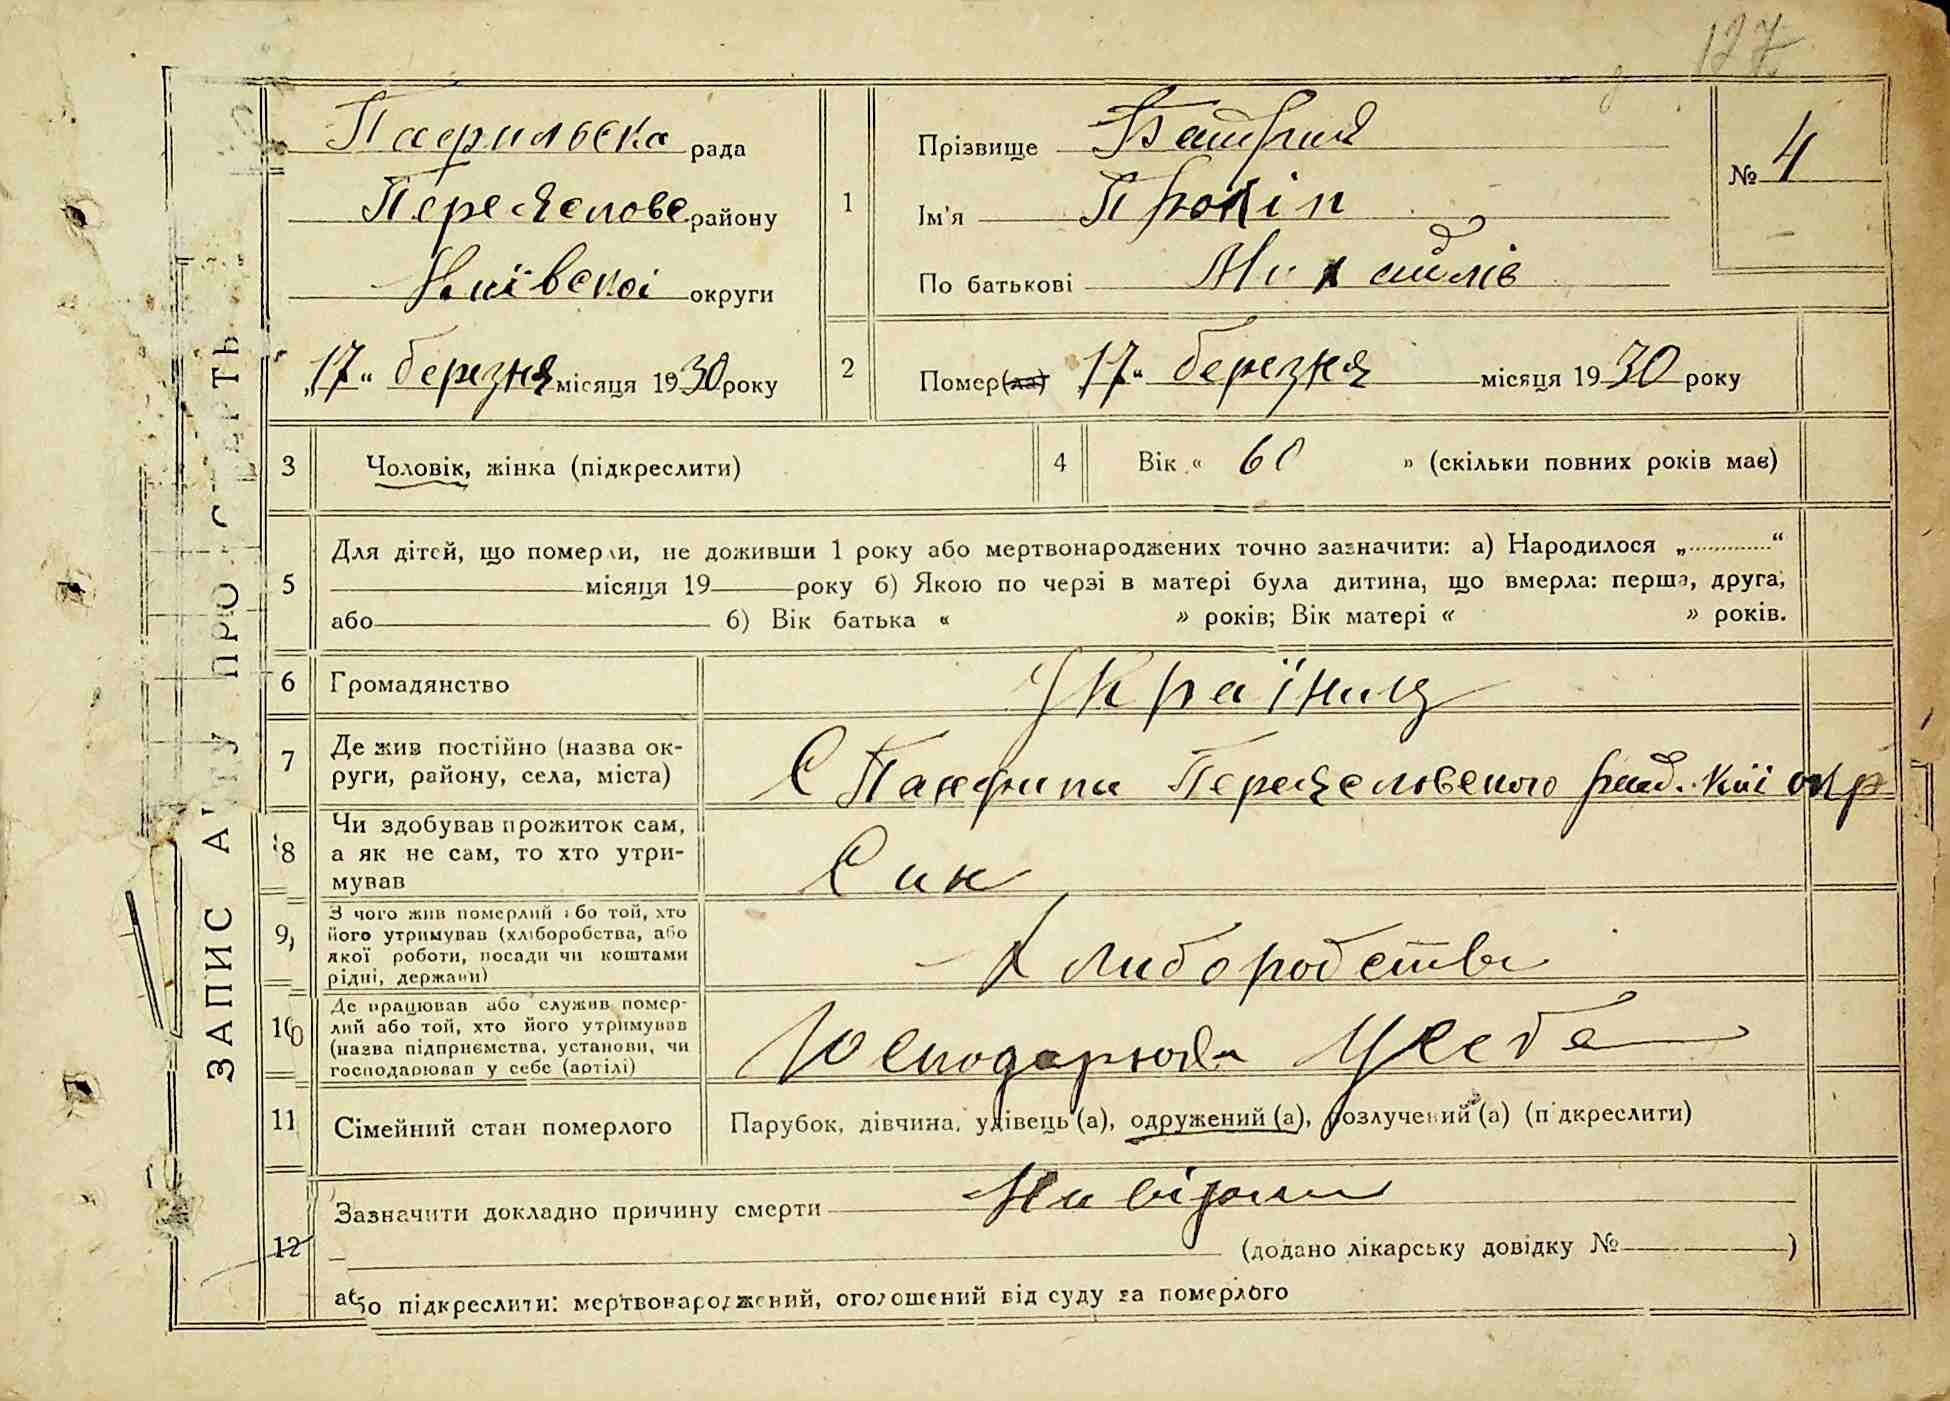 127
ЗАПИС АКТУ ПРО СМЕРТЬ
Пафильска рада
Переяслове району
Київскої округи
„17“ березня місяця 1930 року
1
Прізвище
Ім'я Прокіп
По батькові Михайлів
№ 4
2
Помер(ла) 17“ березня місяця 1930 року
3 Чоловік, жінка (підкреслити)
4 Вік « 60 » (скільки повних років має)
5
Для дітей, що померли, не доживши 1 року або мертвонароджених точно зазначити: а) Народилося „ “
місяця 19 року б) Якою по черзі в матері була дитина, що вмерла: перша, друга,
або б) Вік батька « » років; Вік матері « » років.
6 Громадянство Україниц
7
Де жив постійно (назва ок-
руги, району, села, міста)
С Панфили Переясловского рай. Киї окр
8
Чи здобував прожиток сам,
а як не сам, то хто утри-
мував
Син
9
З чого жив померлий або той, хто
його утримував (хліборобства, або
якої роботи, посади чи коштами
рідні, держави)
Хлиборобства
10
Де працював або служив помер-
лий або той, хто його утримував
(назва підприємства, установи, чи
господарював у себе (артілі)
Усебе
11 Сімейний стан померлого Парубок, дівчина, удівець (а), одружений (а), розлучений (а) (підкреслити)
12
Зазначити докладно причину смерти
(додано лікарську довідку № )
або підкреслити: мертвонароджений, оголошений від суду за померлого